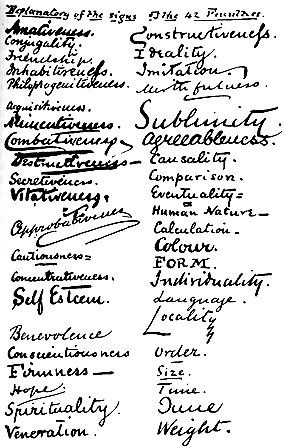 Explanatory of the signs of the 42 Faculties.
Amativeness.
Conjugality.
Friendship.
Inhabitiveness.
Philoprogenitiveness.
Acquisitiveness.
Alimentiveness.
Combativeness
Destructiveness—
Secretiveness.
Vitativeness.
Approbativeness
Cautiousness=
Concentrativeness.
Self Esteem.
Benevolence
Conscientiousness
Firmness—
Hope.
Spirituality.
Veneration.
Constructiveness.
Ideality.
Imitation.
Mirthfulness.
Sublimity.
Agreeableness.
Causality.
Comparison.
Eventuality=
Human Nature—
Calculation—
Colour.
FORM.
Individuality.
Language.
Locality
Order.
Size.
Time.
Tune
Weight.